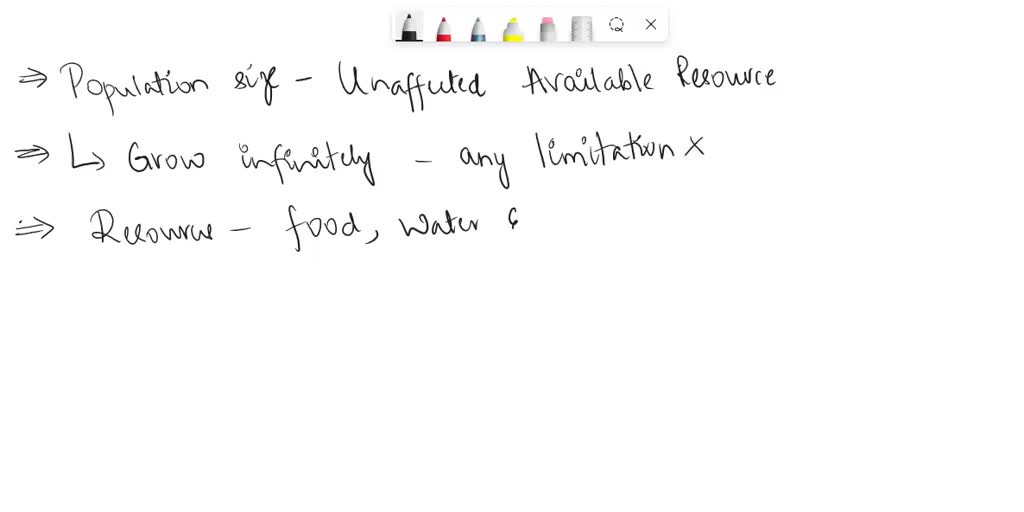 ⇒ Population size - Unaffected Available Resource
⇒ ↳ Grow infinitely - any limitation ×
⇒ Resource - food, water &